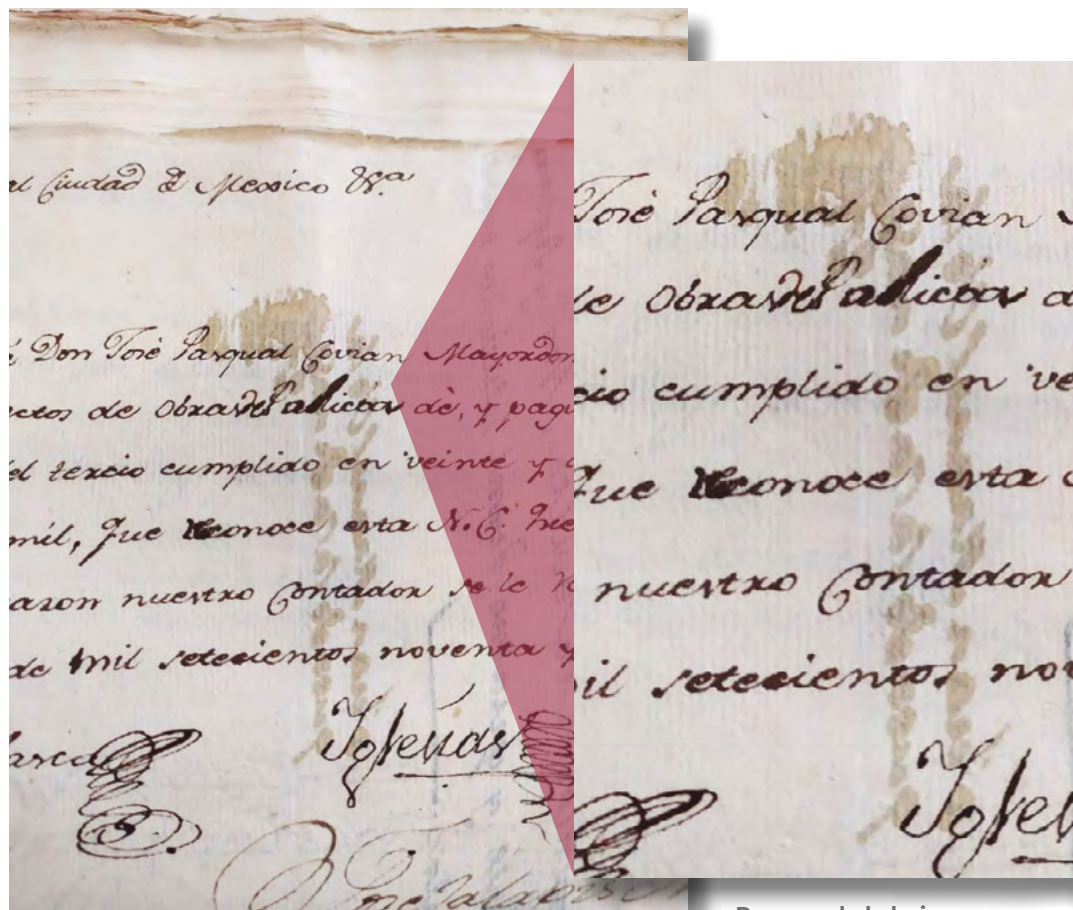 al Ciudad de Mexico &.a
Don José Pasqual Covian Mayordom
ectos de Obras Publicas dè, y pag
el tercio cumplido en veinte y
mil, que reconoce esta N.C.
nuestro Contador se le
de mil setecientos noventa y
Iglesias
José Pasqual Covian
de Obras Publicas
cio cumplido en ve
que reconoce esta
nuestro Contador
il setecientos nov
Igles